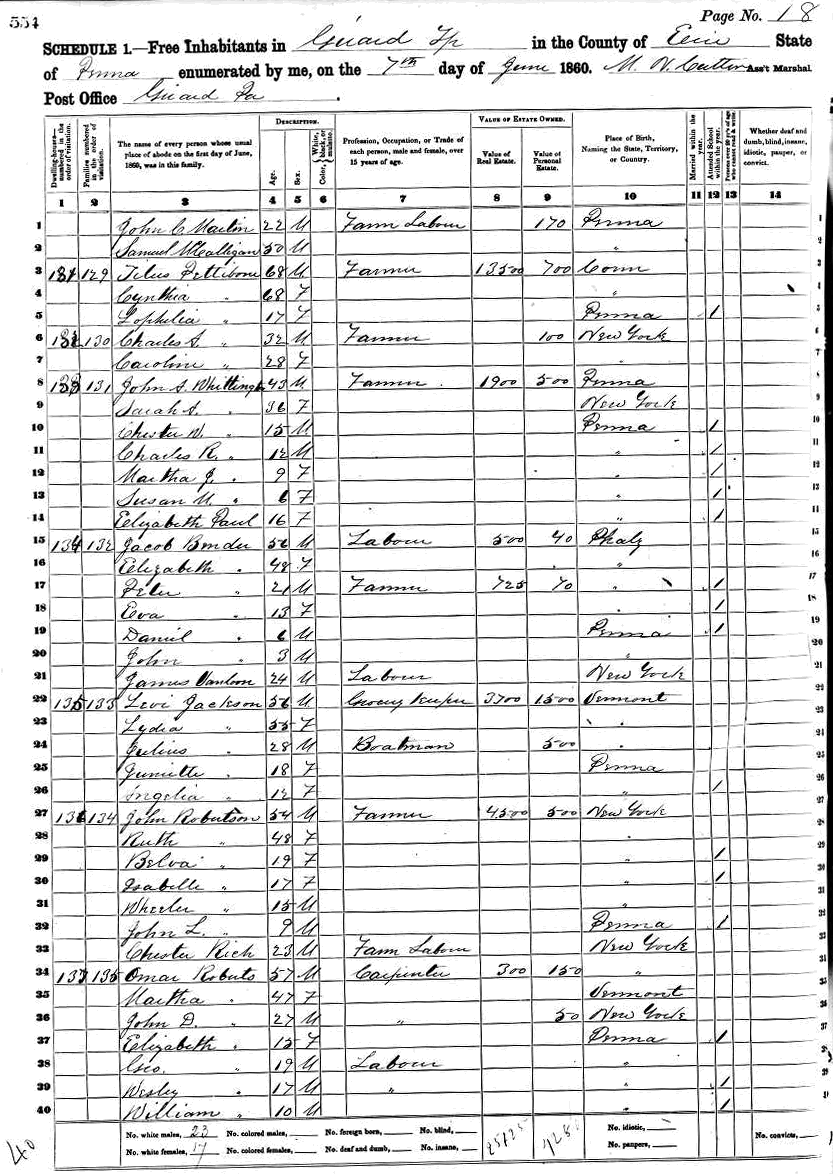 554
Page No. 18
SCHEDULE 1.—Free Inhabitants in Girard Tp in the County of Erie State
of Penna enumerated by me, on the 7th day of June 1860. M. N. Cutter Ass't Marshal
Post Office Girard Pa.
Dwelling-houses—numbered in the order of visitation.
Families numbered in the order of visitation.
The name of every person whose usual place of abode on the first day of June, 1860, was in this family.
DESCRIPTION.
Age.
Sex.
Color, White, black, or mulatto.
Profession, Occupation, or Trade of each person, male and female, over 15 years of age.
VALUE OF ESTATE OWNED.
Value of Real Estate.
Value of Personal Estate.
Place of Birth, Naming the State, Territory, or Country.
Married within the year.
Attended School within the year.
Persons over 20 y'rs of age who cannot read & write.
Whether deaf and dumb, blind, insane, idiotic, pauper, or convict.
1 2 3 4 5 6 7 8 9 10 11 12 13 14
1 John C Martin 22 M Farm Labour 170 Penna 1
2 Samuel 50 M " 2
3 131 129 Titus Pettibone 68 M Farmer 13500 700 Conn 3
4 Cynthia " 68 F " 4
5 Lophelia " 17 F Penna / 5
6 132 130 Charles S. " 32 M Farmer 100 New York 6
7 Caroline " 28 F " 7
8 133 131 John S. Whittington 43 M Farmer 1900 500 Penna 8
9 Sarah A. " 36 F New York 9
10 Chester W. " 15 M Penna / 10
11 Charles R. " 12 M " / 11
12 Martha J. " 9 F " / 12
13 Susan M. " 6 F " / 13
14 Elizabeth Paul 16 F " / 14
15 134 132 Jacob Bender 56 M Labour 500 40 Phalz 15
16 Elizabeth " 48 F " 16
17 Peter " 21 M Farmer 725 70 " / 17
18 Eva " 13 F " / 18
19 Daniel " 6 M Penna / 19
20 John " 3 M " 20
21 James Vanloon 24 M Labour New York 21
22 135 133 Levi Jackson 56 M Grocery Keeper 3700 1500 Vermont 22
23 Lydia " 55 F " 23
24 Julius " 28 M Boatman 500 " 24
25 Juniette " 18 F Penna 25
26 Angelia " 12 F " / 26
27 136 134 John Robertson 54 M Farmer 4500 500 New York 27
28 Ruth " 48 F " 28
29 Belva " 19 F " / 29
30 Isabelle " 17 F " / 30
31 Wheeler " 15 M " 31
32 John L. " 9 M Penna / 32
33 Chester Rich 23 M Farm Labour New York 33
34 137 135 Omar Roberts 57 M Carpenter 300 150 " 34
35 Martha " 47 F Vermont 35
36 John D. " 27 M " 50 New York 36
37 Elizabeth " 15 F Penna / 37
38 Geo. " 19 M Labour " 38
39 Wesley " 17 M " " / 39
40 William " 10 M " / 40
40
No. white males, 23 No. colored males, No. foreign born, No. blind, 25125 No. idiotic, No. convicts,
No. white females, 17 No. colored females, No. deaf and dumb, No. insane, No. paupers,